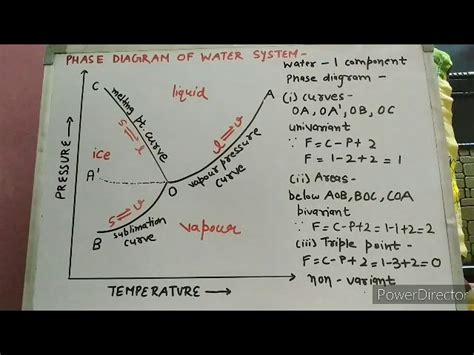 PHASE DIAGRAM OF WATER SYSTEM-
C
melting pt. curve
S⇌l
liquid
A
l⇌v
vapour pressure
curve
ice
A'
O
S⇌v
B
sublimation
curve
vapour
PRESSURE →
TEMPERATURE →
water - 1 component
Phase diagram -
(i) curves -
OA, OA', OB, OC
univariant
∵ F=C-P+2
F=1-2+2=1
(ii) Areas-
below AOB, BOC, COA
bivariant
∵ F=C-P+2=1-1+2=2
(iii) Triple point -
F=C-P+2=1-3+2=0
non-variant
PowerDirector